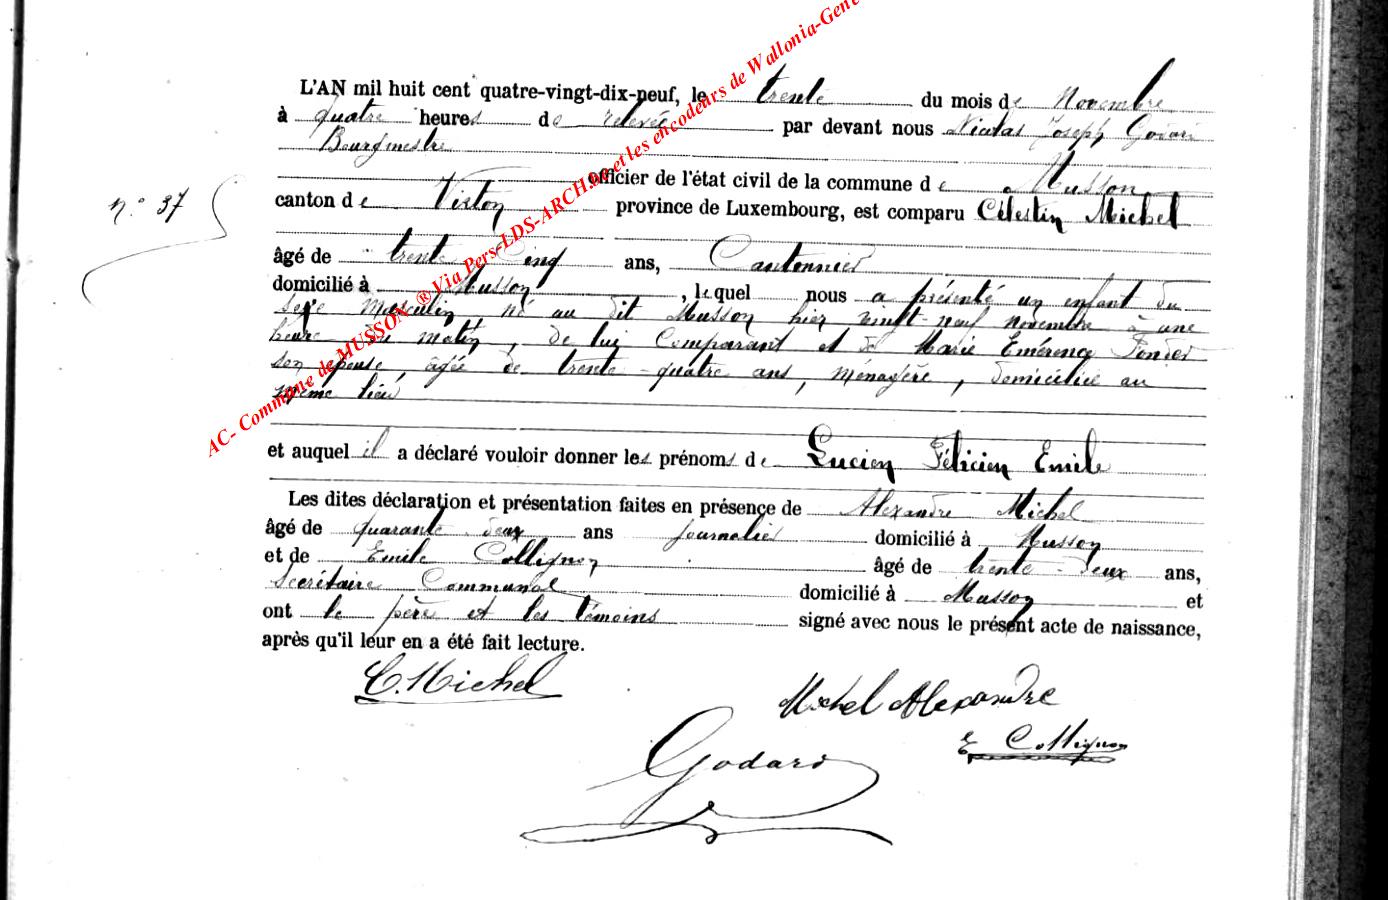 L'AN mil huit cent quatre-vingt-dix-neuf, le trente du mois de Novembre
à quatre heures de relevée par devant nous Nicolas Joseph Godard
Bourgmestre
officier de l'état civil de la commune de Musson
n.° 37
canton de Virton province de Luxembourg, est comparu Célestin Michel
âgé de trente cinq ans, Cantonnier
domicilié à Musson, lequel nous a présenté un enfant du
sexe masculin, né au dit Musson hier vingt-neuf novembre à une
heure du matin, de lui Comparant et de Marie Emérence
son épouse, âgée de trente-quatre ans, ménagère, domiciliée au
même lieu
et auquel il a déclaré vouloir donner les prénoms de Lucien Félicien Emile
Les dites déclaration et présentation faites en présence de Alexandre Michel
âgé de quarante deux ans journalier domicilié à Musson
et de Emile Collignon âgé de trente-deux ans,
Secrétaire Communal domicilié à Musson et
ont le père et les témoins signé avec nous le présent acte de naissance,
après qu'il leur en a été fait lecture.
C. Michel
Michel Alexandre
E Collignon
Godard
AC- Commune de MUSSON ® Via Pers-LDS-ARCH.be et les encodeurs de Wallonia-Gene